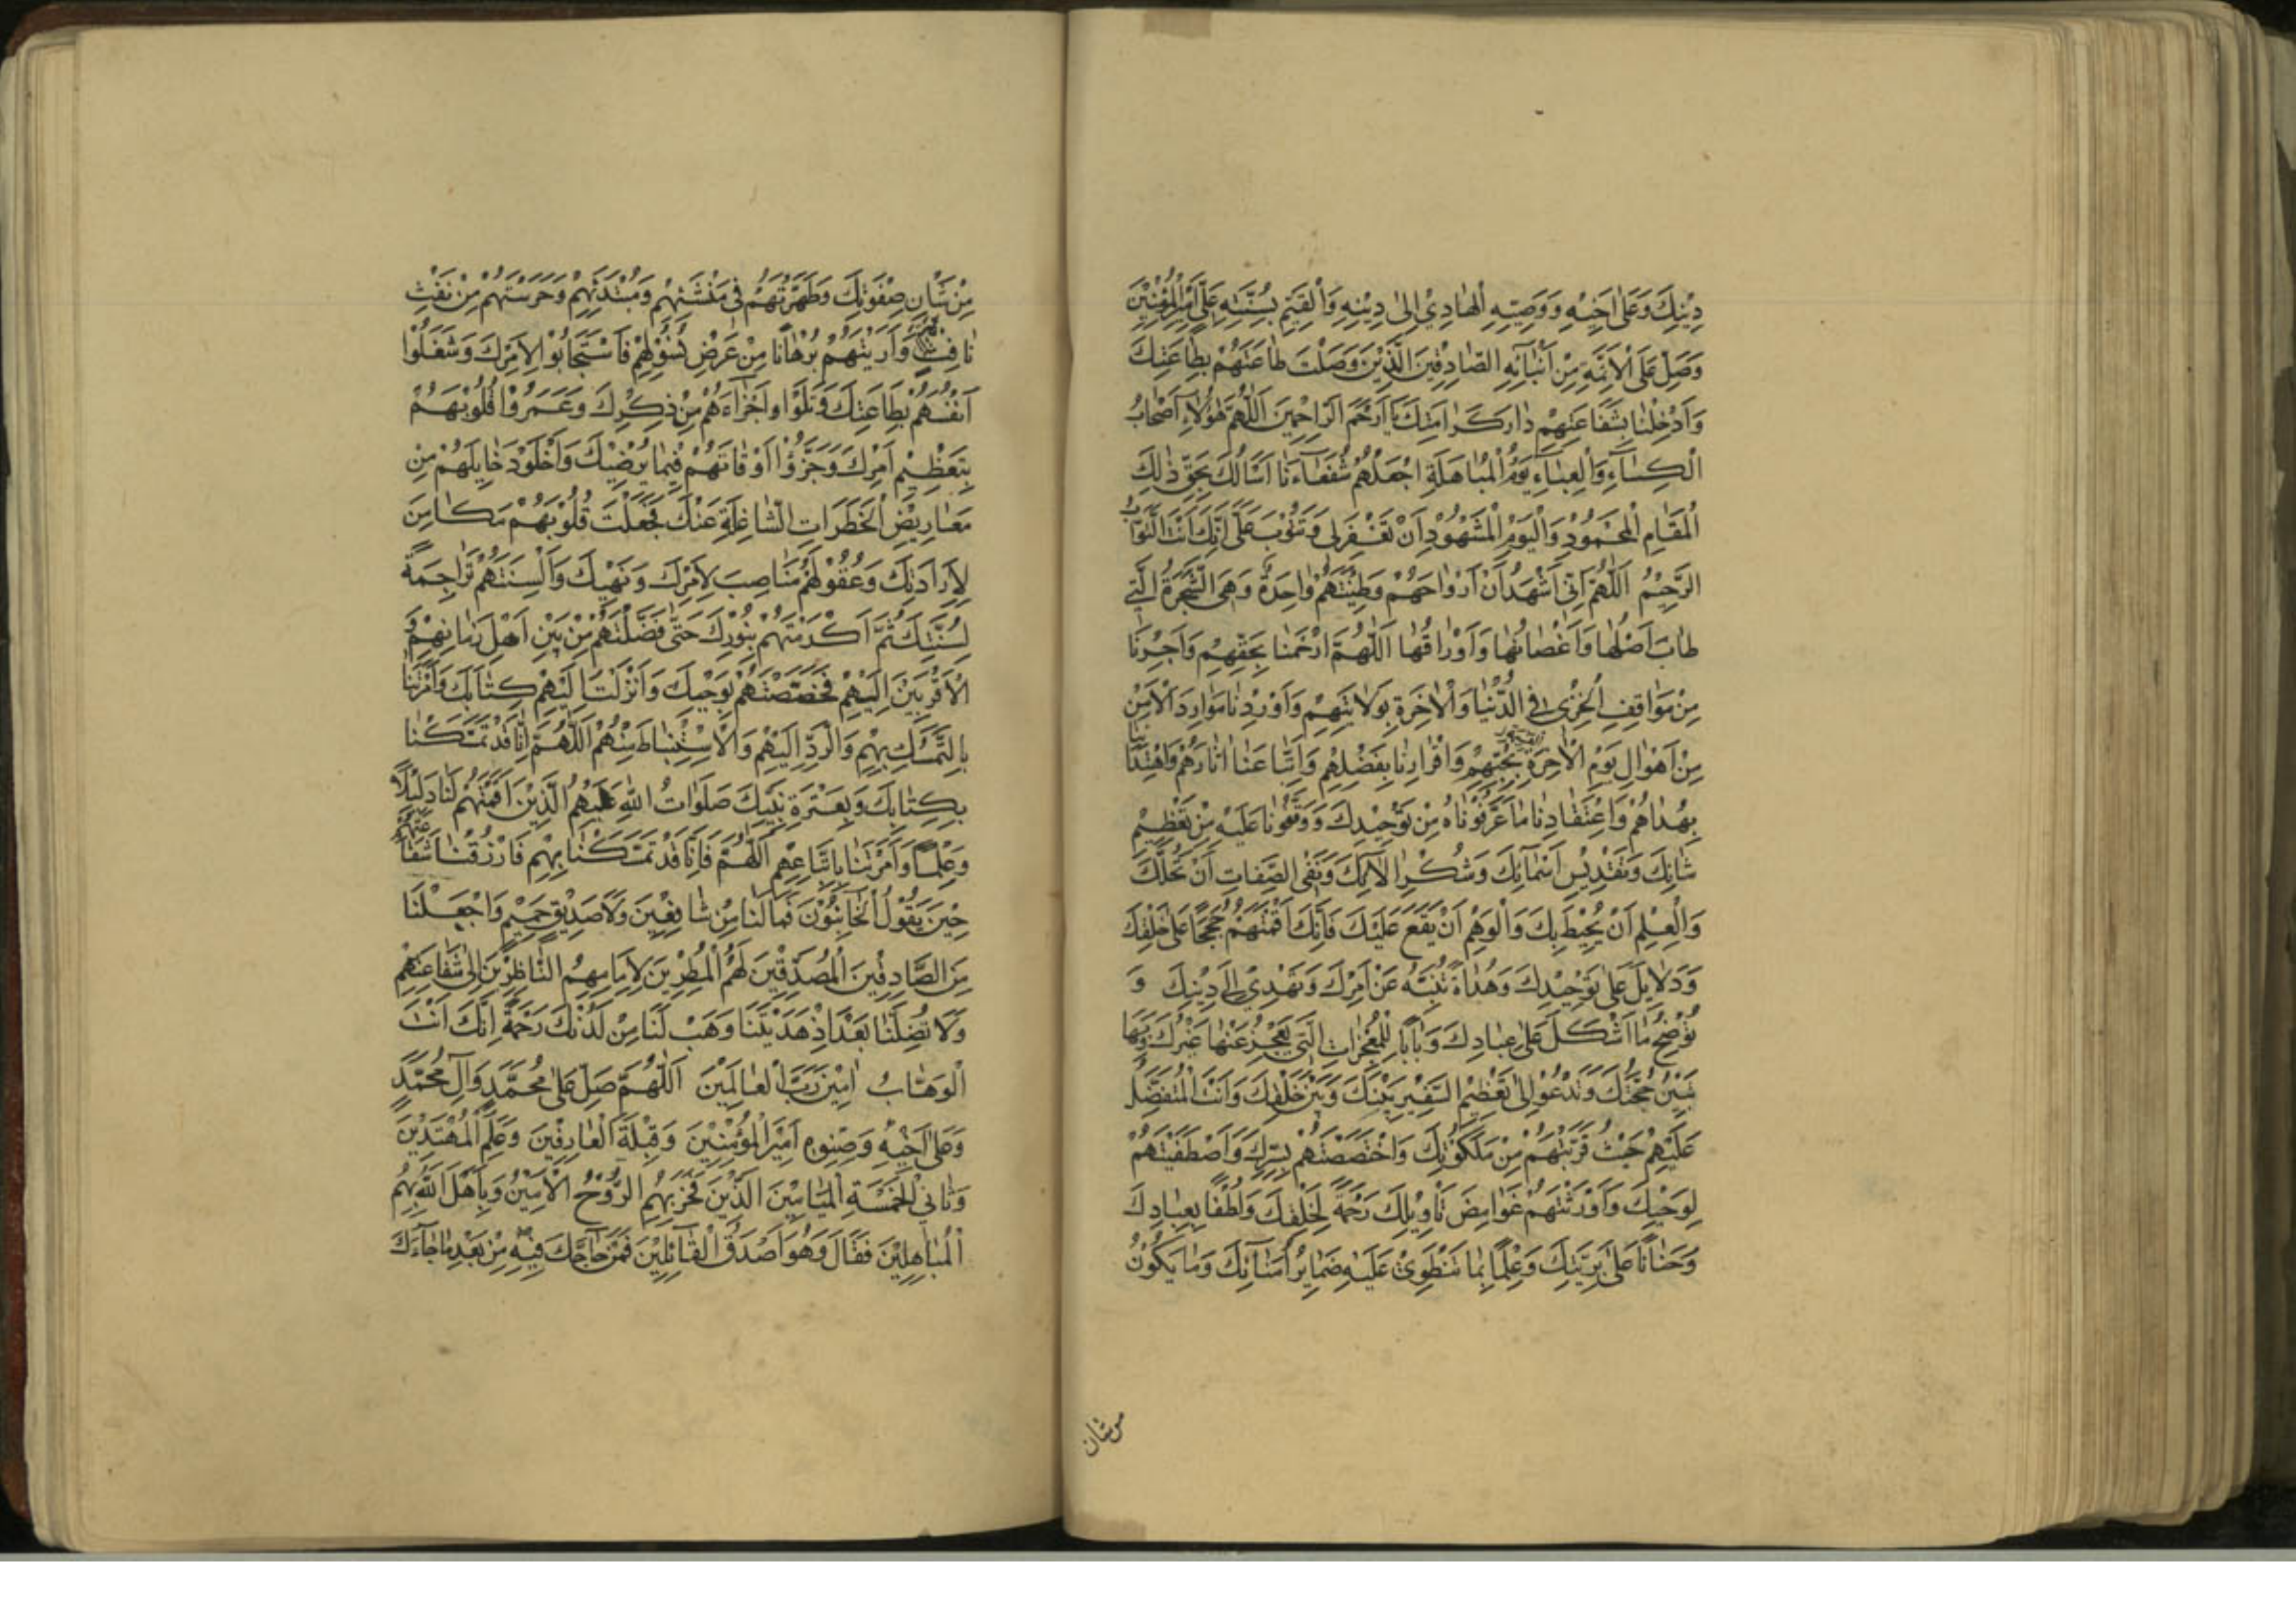 دِيْنِكَ وَعَلىٰ اَخِيْهِ وَوَصِيِّهِ الْهَادِيْ اِلىٰ دِيْنِهِ وَالْقَيِّمِ بِسُنَّتِهِ عَلِيٍّ اَمِيْرِ الْمُؤْمِنِيْنَ
وَصَلِّ عَلَى الْاَئِمَّةِ مِنْ اَبْنَائِهِ الصَّادِقِيْنَ الَّذِيْنَ وَصَلْتَ طَاعَتَهُمْ بِطَاعَتِكَ
وَاَدْخِلْنَا بِشَفَاعَتِهِمْ دَارَ كَرَامَتِكَ يَا اَرْحَمَ الرَّاحِمِيْنَ اَللّٰهُمَّ هٰؤُلَاءِ اَصْحَابُ
الْكِسَاءِ وَالْعَبَاءِ يَوْمَ الْمُبَاهَلَةِ اجْعَلْهُمْ شُفَعَاءَنَا اَسْاَلُكَ بِحَقِّ ذٰلِكَ
الْمَقَامِ الْمَحْمُوْدِ وَالْيَوْمِ الْمَشْهُوْدِ اَنْ تَغْفِرَ لِى وَتَتُوْبَ عَلَىَّ اِنَّكَ اَنْتَ التَّوَّابُ
الرَّحِيْمُ اَللّٰهُمَّ اِنِّى اَشْهَدُ اَنَّ اَرْوَاحَهُمْ وَطِيْنَتَهُمْ وَاحِدَةٌ وَهِىَ الشَّجَرَةُ الَّتِى
طَابَ اَصْلُهَا وَاَغْصَانُهَا وَاَوْرَاقُهَا اَللّٰهُمَّ ارْحَمْنَا بِحَقِّهِمْ وَاَجِرْنَا
مِنْ مَوَاقِفِ الْخِزْىِ فِى الدُّنْيَا وَالْاٰخِرَةِ بِوَلَايَتِهِمْ وَاَوْرِدْنَا مَوَارِدَ الْاَمْنِ
مِنْ اَهْوَالِ يَوْمِ الْاٰخِرَةِ بِحُبِّهِمْ وَاِقْرَارِنَا بِفَضْلِهِمْ وَاتِّبَاعِنَا اٰثَارَهُمْ وَاهْتِدَائِنَا
بِهُدَاهُمْ وَاعْتِقَادِنَا مَا عَرَّفُوْنَاهُ مِنْ تَوْحِيْدِكَ وَوَقَّفُوْنَا عَلَيْهِ مِنْ تَعْظِيْمِ
شَانِكَ وَتَقْدِيْسِ اَسْمَائِكَ وَشُكْرِ اٰلَائِكَ وَنَفْىِ الصِّفَاتِ اَنْ تَحُلَّكَ
وَالْعِلْمِ اَنْ يُحِيْطَ بِكَ وَالْوَهْمِ اَنْ يَقَعَ عَلَيْكَ فَاِنَّكَ اَقَمْتَهُمْ حُجَجًا عَلىٰ خَلْقِكَ
وَدَلَايِلَ عَلىٰ تَوْحِيْدِكَ وَهُدَاةً تُنَبِّهُ عَنْ اَمْرِكَ وَتَهْدِيْ اِلىٰ دِيْنِكَ وَ
تُوْضِحُ مَا اَشْكَلَ عَلىٰ عِبَادِكَ وَبَابًا لِلْمُعْجِزَاتِ الَّتِى يَعْجِزُ عَنْهَا غَيْرُكَ وَبِهَا
تُبَيِّنُ حُجَّتَكَ وَتَدْعُوْ اِلىٰ تَعْظِيْمِ السَّفِيْرِ بَيْنَكَ وَبَيْنَ خَلْقِكَ وَاَنْتَ الْمُتَفَضِّلُ
عَلَيْهِمْ حَيْثُ قَرَّبْتَهُمْ مِنْ مَلَكُوْتِكَ وَاخْتَصَصْتَهُمْ بِسِرِّكَ وَاصْطَفَيْتَهُمْ
لِوَحْيِكَ وَاَوْرَثْتَهُمْ غَوَامِضَ تَاْوِيْلِكَ رَحْمَةً لِخَلْقِكَ وَلُطْفًا بِعِبَادِكَ
وَحَنَانًا عَلىٰ بَرِيَّتِكَ وَعِلْمًا بِمَا تَنْطَوِىْ عَلَيْهِ ضَمَايِرُ اُمَنَائِكَ وَمَا يَكُوْنُ
من شان
مِنْ شَانِ صِفْوَتِكَ وَطَهَّرْتَهُمْ فِى مَنْشَئِهِمْ وَمُبْتَدَئِهِمْ وَحَرَسْتَهُمْ مِنْ نَفْثِ
نَافِثٍ وَاَرَيْتَهُمْ بُرْهَانًا مِنْ عَرَضٍ بِسُوْءٍ لَهُمْ فَاسْتَجَابُوْا لِاَمْرِكَ وَشَغَلُوْا
اَنْفُسَهُمْ بِطَاعَتِكَ وَمَلَؤُا اَجْزَاءَهُمْ مِنْ ذِكْرِكَ وَعَمَرُوْا قُلُوْبَهُمْ
بِتَعْظِيْمِ اَمْرِكَ وَجَزَّؤُا اَوْقَاتَهُمْ فِيْمَا يُرْضِيْكَ وَاَخْلَوْ دَخَايِلَهُمْ مِنْ
مَعَارِيْضِ الْخَطَرَاتِ الشَّاغِلَةِ عَنْكَ فَجَعَلْتَ قُلُوْبَهُمْ مَكَامِنَ
لِاِرَادَتِكَ وَعُقُوْلَهُمْ مَنَاصِبَ لِاَمْرِكَ وَنَهْيِكَ وَاَلْسِنَتَهُمْ تَرَاجِمَةً
لِسُنَّتِكَ ثُمَّ اَكْرَمْتَهُمْ بِنُوْرِكَ حَتّٰى فَضَّلْتَهُمْ مِنْ بَيْنِ اَهْلِ زَمَانِهِمْ وَ
الْاَقْرَبِيْنَ اِلَيْهِمْ فَخَصَصْتَهُمْ بِوَحْيِكَ وَاَنْزَلْتَ اِلَيْهِمْ كِتَابَكَ وَاَمَرْتَنَا
بِالتَّمَسُّكِ بِهِمْ وَالرَّدِّ اِلَيْهِمْ وَالْاِسْتِنْبَاطِ مِنْهُمْ اَللّٰهُمَّ اِنَّا قَدْ تَمَسَّكْنَا
بِكِتَابِكَ وَبِعِتْرَةِ نَبِيِّكَ صَلَوَاتُ اللّٰهِ عَلَيْهِمُ الَّذِيْنَ اَقَمْتَهُمْ لَنَا دَلِيْلًا
وَعِلْمًا وَاَمَرْتَنَا بِاتِّبَاعِهِمْ اَللّٰهُمَّ فَاِنَّا قَدْ تَمَسَّكْنَا بِهِمْ فَارْزُقْنَا شَفَاعَتَهُمْ
حِيْنَ يَقُوْلُ الْخَائِبُوْنَ فَمَا لَنَا مِنْ شَافِعِيْنَ وَلَا صَدِيْقٍ حَمِيْمٍ وَاجْعَلْنَا
مِنَ الصَّادِقِيْنَ الْمُصَدِّقِيْنَ لَهُمُ الْمُنْتَظِرِيْنَ لِاِمَامِهِمُ النَّاظِرِيْنَ اِلىٰ شَفَاعَتِهِمْ
وَلَا تُضِلَّنَا بَعْدَ اِذْ هَدَيْتَنَا وَهَبْ لَنَا مِنْ لَدُنْكَ رَحْمَةً اِنَّكَ اَنْتَ
الْوَهَّابُ اٰمِيْنَ رَبَّ الْعَالَمِيْنَ اَللّٰهُمَّ صَلِّ عَلىٰ مُحَمَّدٍ وَاٰلِ مُحَمَّدٍ
وَعَلىٰ اَخِيْهِ وَصِنْوِهِ اَمِيْرِ الْمُؤْمِنِيْنَ وَقِبْلَةِ الْعَارِفِيْنَ وَعَلَمِ الْمُهْتَدِيْنَ
وَثَانِي الْخَمْسَةِ الْمَيَامِيْنَ الَّذِيْنَ فَخَرَ بِهِمُ الرُّوْحُ الْاَمِيْنُ وَبَاهَلَ اللّٰهُ بِهِمُ
الْمُبَاهِلِيْنَ فَقَالَ وَهُوَ اَصْدَقُ الْقَائِلِيْنَ فَمَنْ حَاجَّكَ فِيْهِ مِنْ بَعْدِ مَا جَاءَكَ